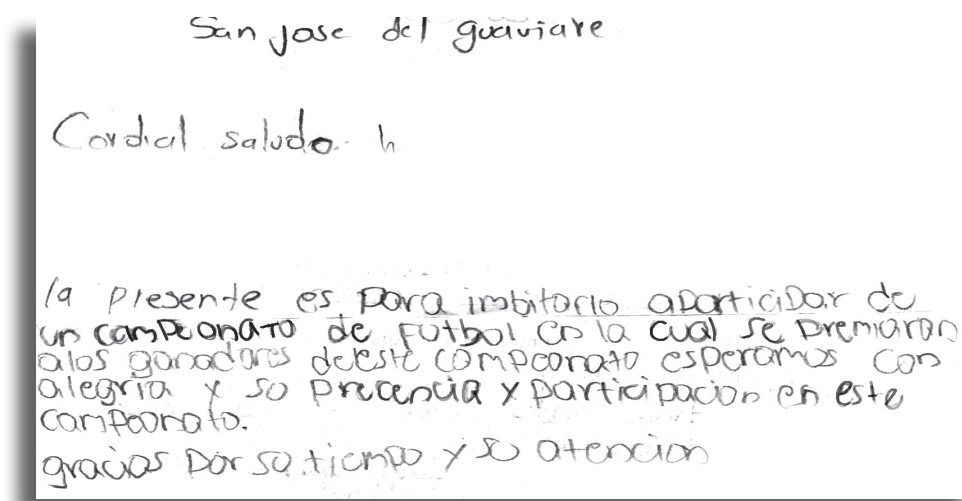 San jose del guaviare
Cordial saludo. h
la presente es para imbitarlo aparticipar de
un campeonato de futbol en la cual se premiaran
alos ganadores deeste campeonato esperamos con
alegria y so precencia y participacion en este
campeonato.
gracias por su tiempo y su atencion